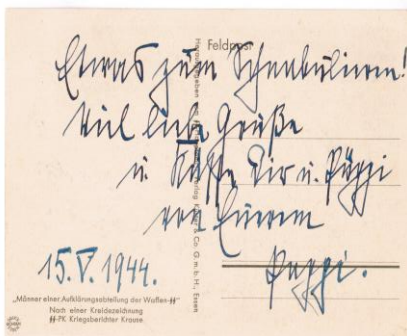 Feldpost
Etwas zum Schnabulieren!
Viel liebe Grüße
u. Küsse Dir u. Püppi
von Euerem
Pappi.
15.V.1944.
„Männer einer Aufklärungsabteilung der Waffen-SS“
Nach einer Kreidezeichnung
SS-PK Kriegsberichter Krause
Co. G.m.b.H., Essen